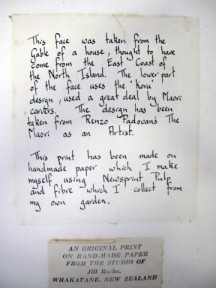 This face was taken from the
Gable of a house, thought to have
come from the East Coast of
the North Island. The lower part
of the face uses the 'koru
design, used a great deal by Maori
carvers. The design has been
taken from Renzo Padovans The
Maori as an Artist.
This print has been made on
handmade paper which I make
myself using Newsprint Pulp
and fibre which I collect from
my own garden.
AN ORIGINAL PRINT
ON HAND-MADE PAPER
FROM THE STUDIO OF
Jill
WHAKATANE, NEW ZEALAND